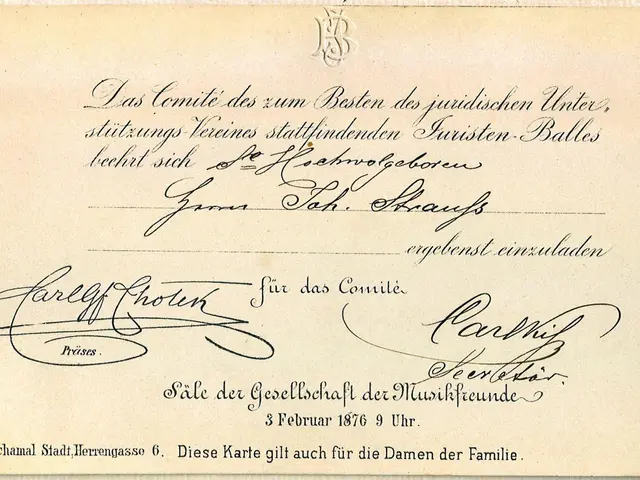 JB
Das Comité des zum Besten des juridischen Unter-
stützungs-Vereines stattfindenden Juristen-Balles
beehrt sich Se Hochwolgeboren
Herrn Joh. Strauss
ergebenst einzuladen
für das Comité
Carl Gf Chotek
Präses.
Carl
Secretär.
Säle der Gesellschaft der Musikfreunde
3 Februar 1876 9 Uhr.
chamal Stadt, Herrengasse 6. Diese Karte gilt auch für die Damen der Familie.